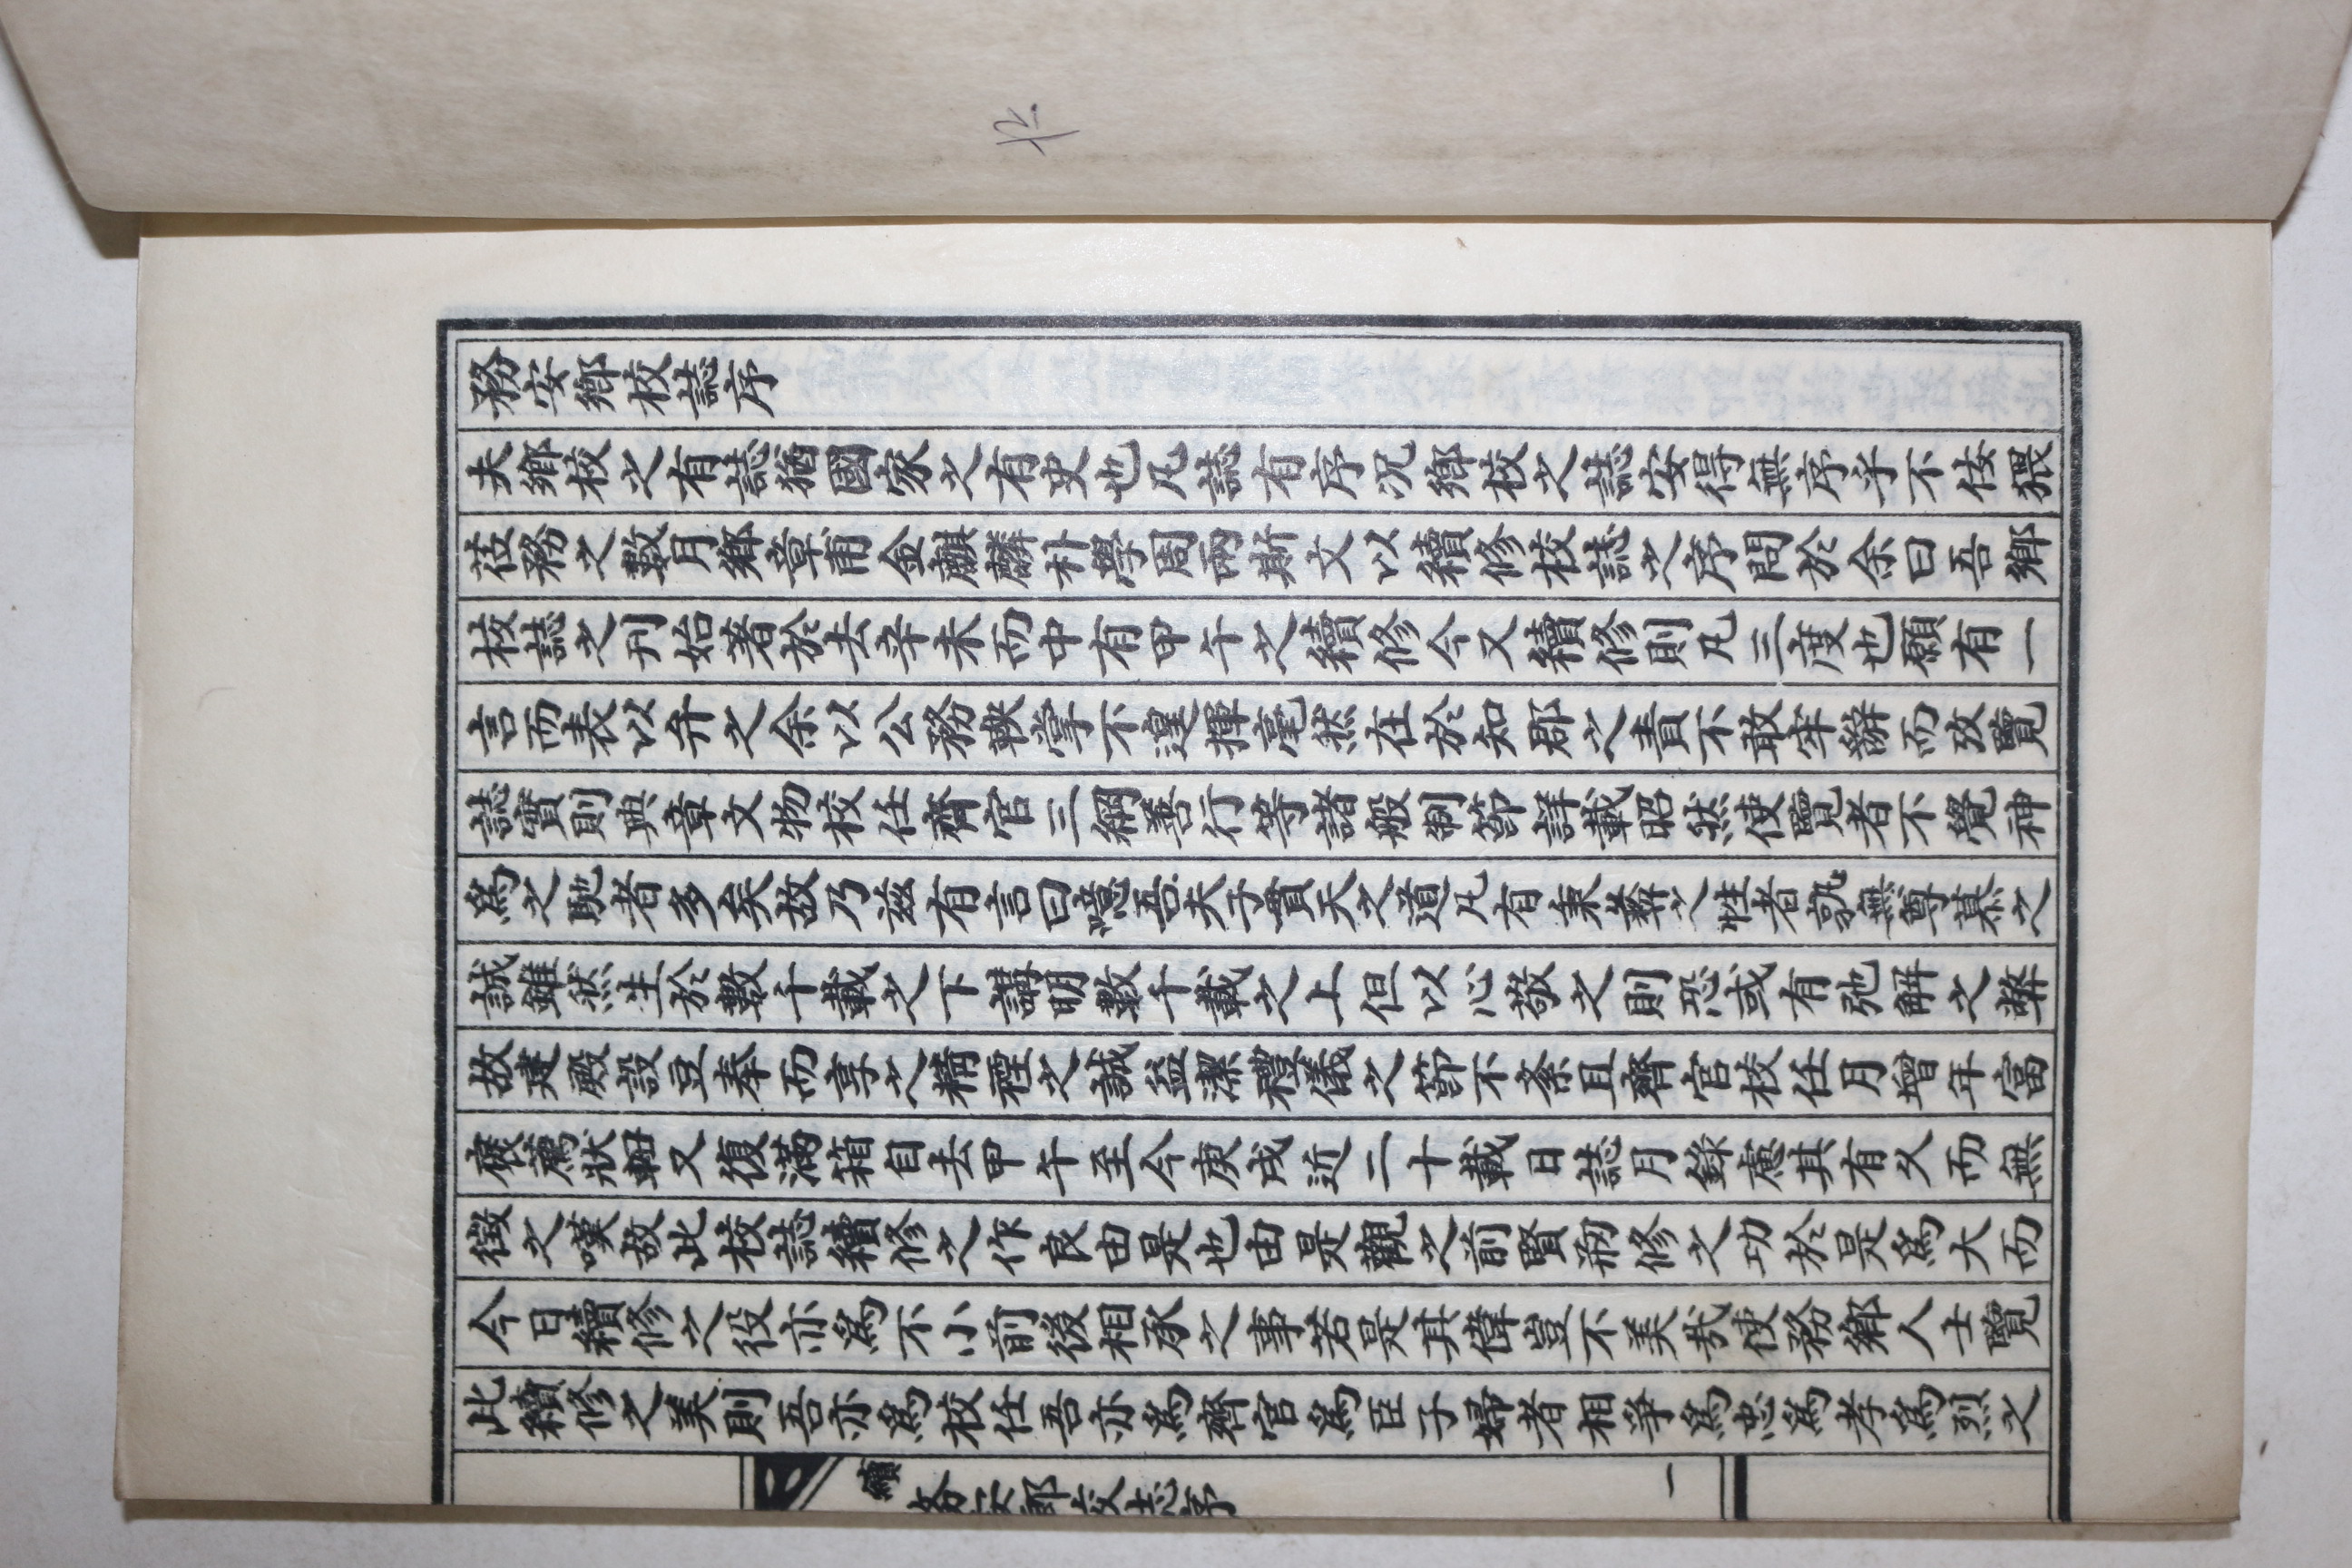 務安鄉校誌序
夫鄉校之有誌猶國家之有史也凡誌有序況鄉校之誌安得無序乎不佞猥
莅務之數月鄉章甫金麒麟朴學周兩斯文以續修校誌之序問於余曰吾鄉
校誌之刊始著於去辛未而中有甲午之續修今又續修則凡三度也願有一
言而表以弁之余以公務鞅掌不遑揮毫然在於知郡之責不敢牢辭而攷覽
誌實則典章文物校任齋官三綱善行等諸般制節詳載昭然使覽者不覺神
爲之馳者多矣故乃玆有言曰噫吾夫子貫天之道凡有秉彝之性者孰無尊慕之
誠雖然生於數千載之下講明數千載之上但以心敬之則恐或有弛解之弊
故建殿設豆奉而享之精禋之誠益潔禮儀之節不紊且齋官校任月增年富
褒薦狀軸又復滿箱自去甲午至今庚戌近二十載日誌月錄慮其有久而無
徵之嘆故此校誌續修之作良由是也由是觀之前賢刱修之功於是爲大而
今日續修之役亦爲不小前後相承之事若是其偉豈不美哉使務鄉人士覽
此續修之美則吾亦爲校任吾亦爲齋官爲臣子婦者相爭爲忠爲孝爲烈之
續務安鄉校誌序 一